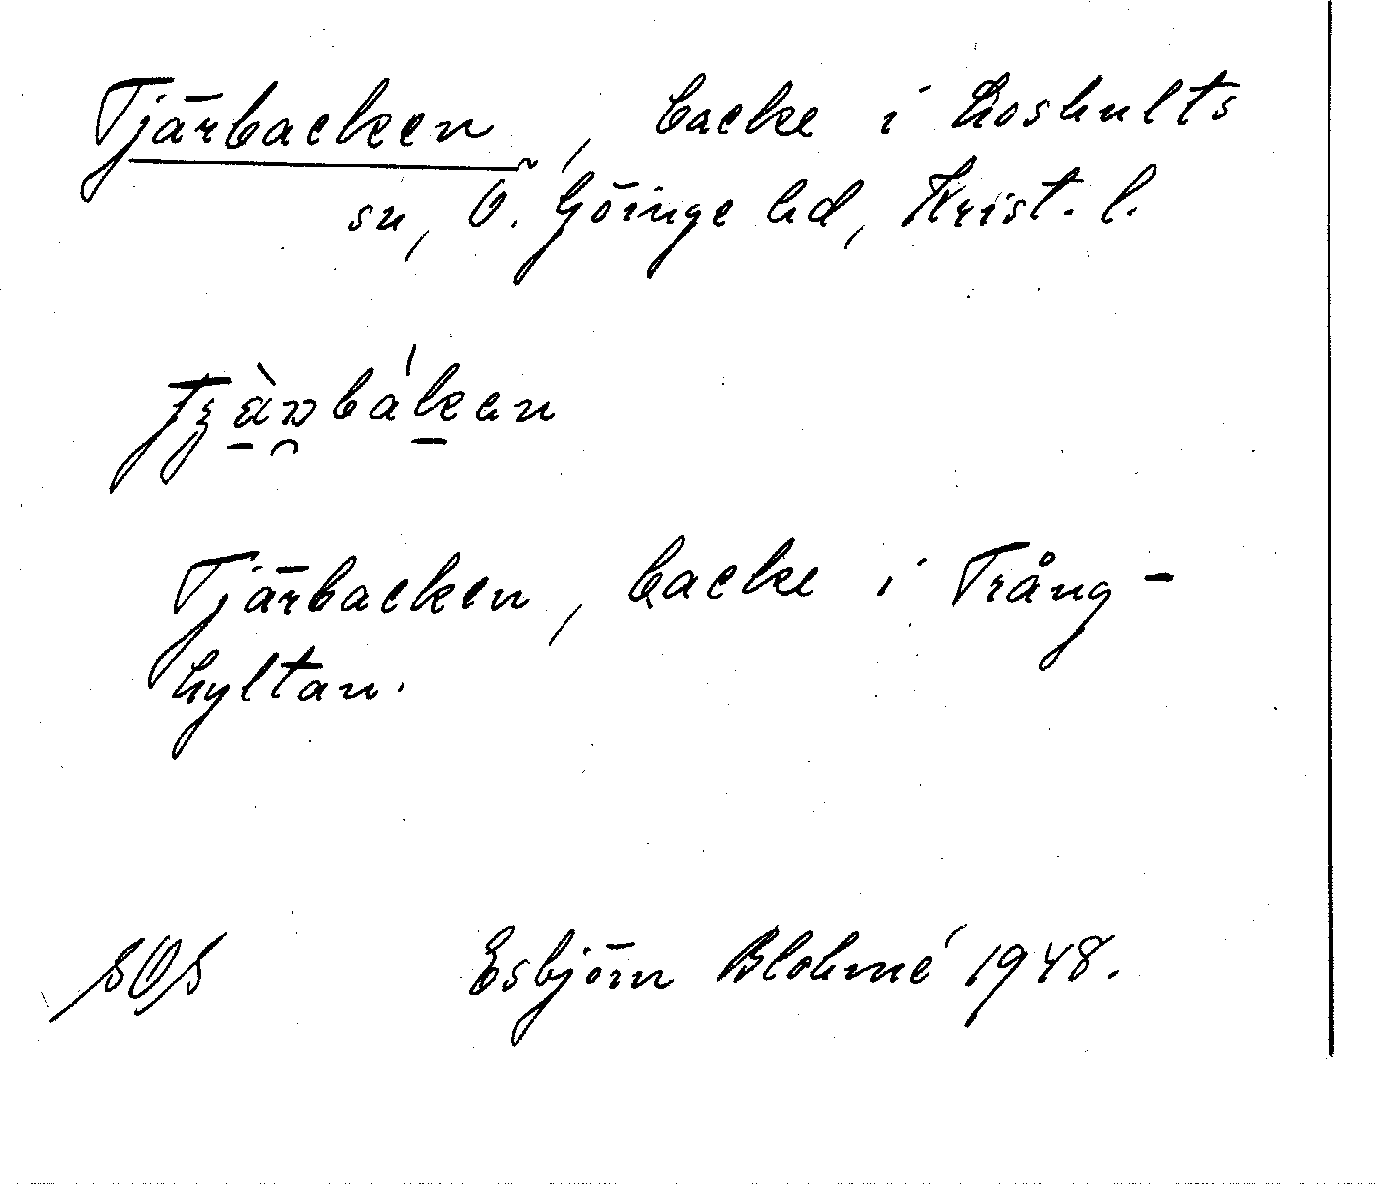 Tjärbacken, backe i Loshults
sn, Ö. Göinge hd, Krist. l.
Tjärbacken, backe i Trång-
hyltan.
Esbjörn Blohmé 1948.